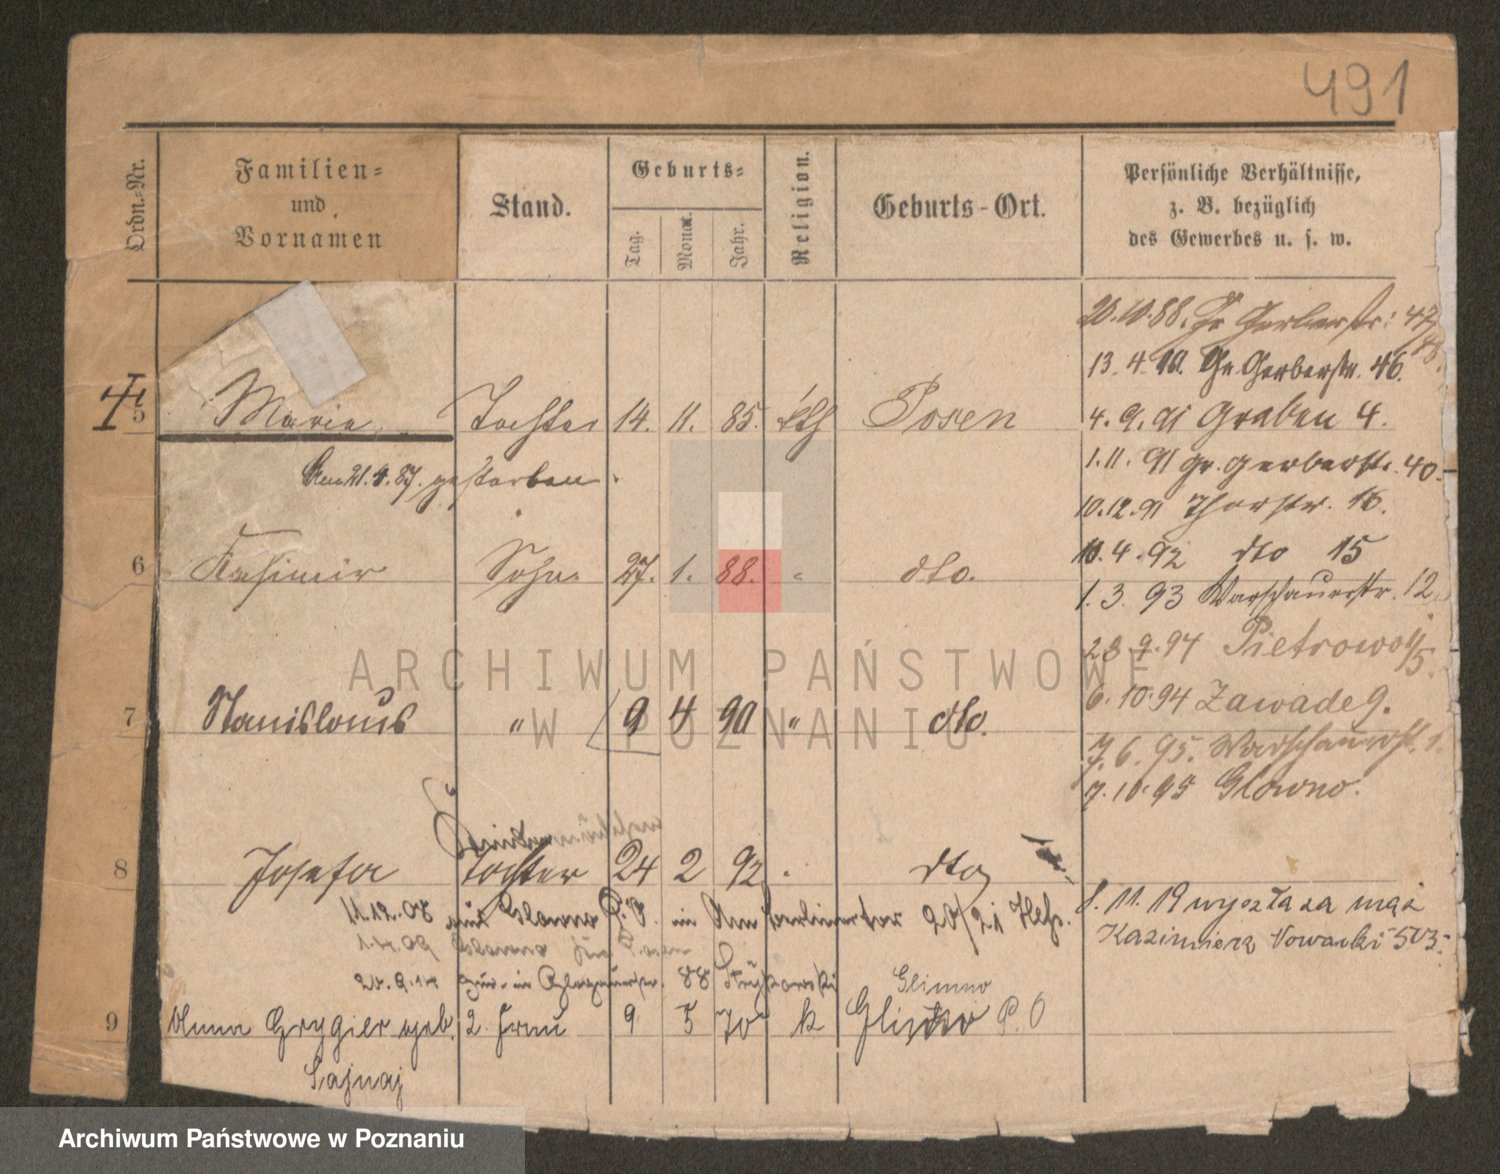 491
Ordn.-Nr.
Familien- und Vornamen
Stand.
Geburts-
Tag.
Monat.
Jahr.
Religion.
Geburts-Ort.
Persönliche Verhältnisse, z. B. bezüglich des Gewerbes u. s. w.
20.10.88. Gr Gerberstr: 47/48.
13.4.90. Gr. Gerberstr. 46.
5 Marie Tochter 14. 11. 85. kth Posen
4.9.91 Graben 4.
Am 21.4.87. gestorben.
1.11.91 gr. gerberstr. 40.
10.12.91 Thorstr. 16.
10.4.92 dto 15
6 Kasimir Sohn 27. 1. 88. " dto.
1.3.93 Warschauerstr. 12.
28.9.94 Pietrowo 11/5.
6.10.94 Zawade 9.
7 Stanislaus " 9 4 90 " dto.
7.6.95. Warschauerst. 1.
7.10.95 Glowno.
8 Josefa Tochter 24 2 92 . dto
11.12.08 aus Glowno P.O. in Am Berlinertor 20/21
8.11.19 wyszła za mąż
Kazimierz Nowacki 503.
1.4.09 Glowno
20.9.14 zur. in 88
Glimno
9 Anna Grygier geb. 2. Frau 9 5 70 k P.O
Sajnaj
ARCHIWUM PAŃSTWOWE
W POZNANIU
Archiwum Państwowe w Poznaniu